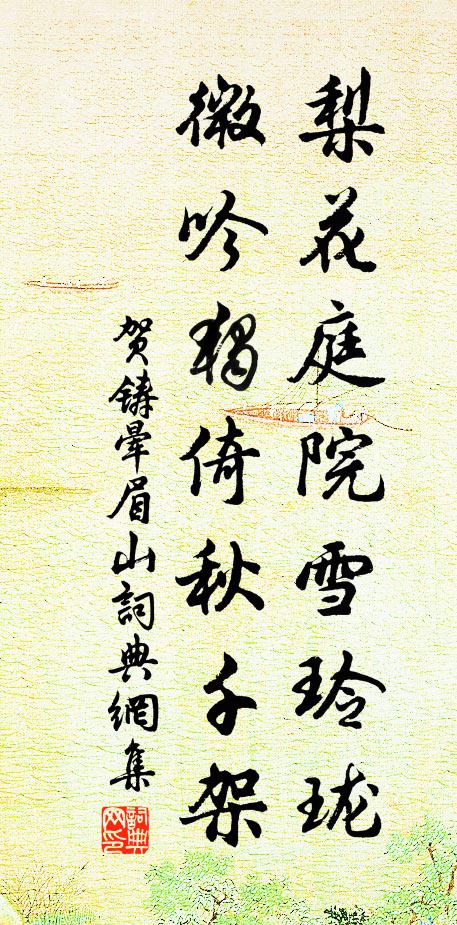 梨花庭院雪玲珑
微吟独倚秋千架
贺铸晕眉山詞典網集
詞典网印